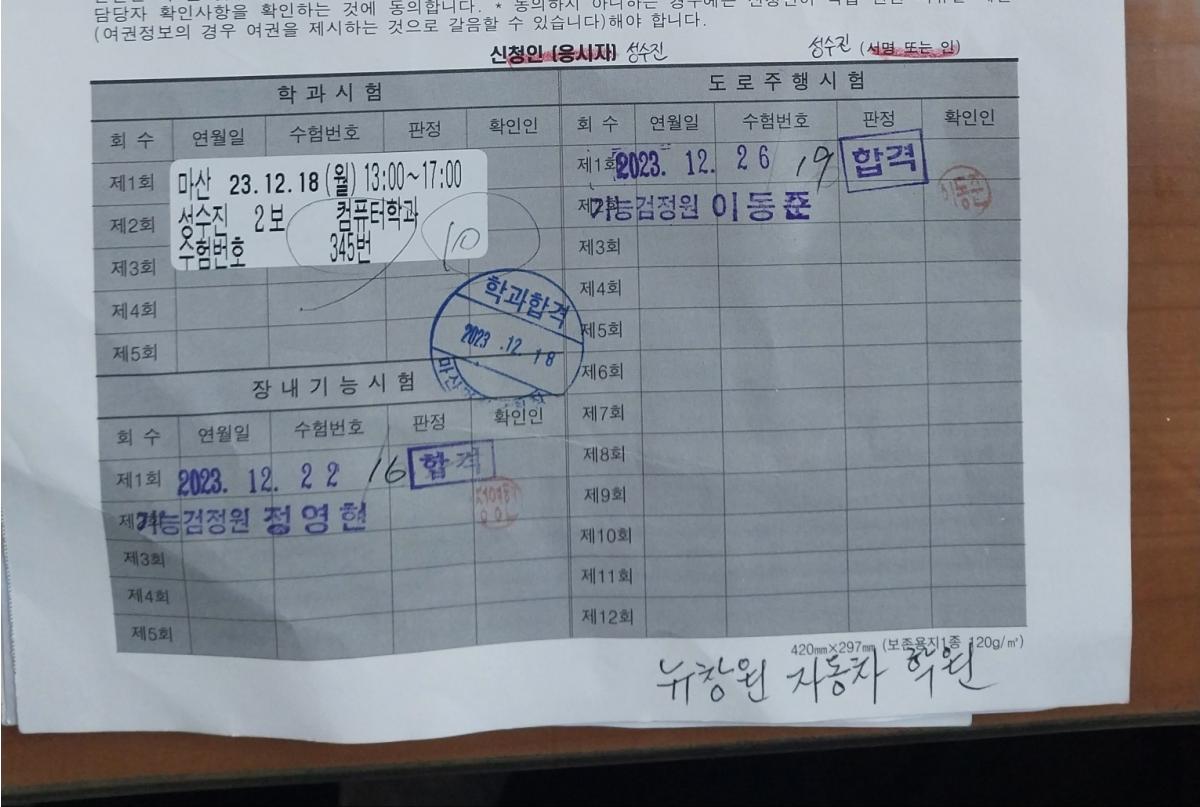 담당자 확인사항을 확인하는 것에 동의합니다. * 동의하지 아니하는 경우에는 신청인이 직접 관련
(여권정보의 경우 여권을 제시하는 것으로 갈음할 수 있습니다)해야 합니다.
신청인 (응시자) 성수진 성수진 (서명 또는 인)
학 과 시 험
회 수 연월일 수험번호 판정 확인인
제1회
제2회
제3회
제4회
제5회
마산 23.12.18(월) 13:00~17:00
성수진 2보 컴퓨터학과
수험번호 345번
10
학과합격
2023 .12. 18
마산
장 내 기 능 시 험
회 수 연월일 수험번호 판정 확인인
제1회 2023. 12. 22 16 합격
기능검정원 정영현
제3회
제4회
제5회
도 로 주 행 시 험
회 수 연월일 수험번호 판정 확인인
제1회 2023. 12. 26 19 합격
기능검정원 이동준
이동준
제3회
제4회
제5회
제6회
제7회
제8회
제9회
제10회
제11회
제12회
420㎜×297㎜ (보존용지1종 120g/㎡)
뉴창원 자동차 학원